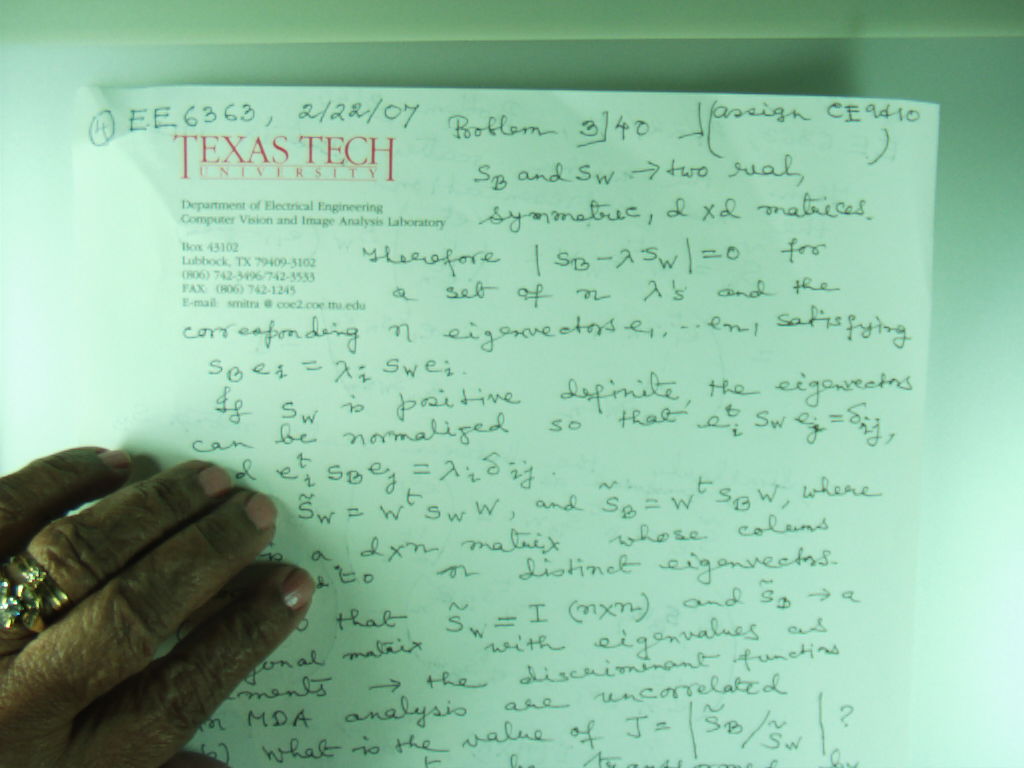 ④ EE 6363, 2/22/07 Problem 3]40 (assign CE 9&10)
TEXAS TECH
UNIVERSITY
Department of Electrical Engineering
Computer Vision and Image Analysis Laboratory
Box 43102
Lubbock, TX 79409-3102
(806) 742-3496/742-3533
FAX: (806) 742-1245
E-mail: smitra @ coe2.coe.ttu.edu
S_B and S_W → two real,
symmetric, d x d matrices.
Therefore | S_B - λ S_W | = 0 for
a set of n λ's and the
corresponding n eigenvectors e_1, ... e_n, satisfying
S_B e_i = λ_i S_W e_i.
If S_W is positive definite, the eigenvectors
can be normalized so that e_i^t S_W e_j = δ_ij,
e_i^t S_B e_j = λ_i δ_ij.
S̃_W = W^t S_W W, and S̃_B = W^t S_B W, where
a d x n matrix whose colums
to n distinct eigenvectors.
that S̃_W = I (n x n) and S̃_B → a
matrix with eigenvalues as
→ the discriminant functins
in MDA analysis are uncorrelated
(b) What is the value of J = | S̃_B / S̃_W | ?
transformed by